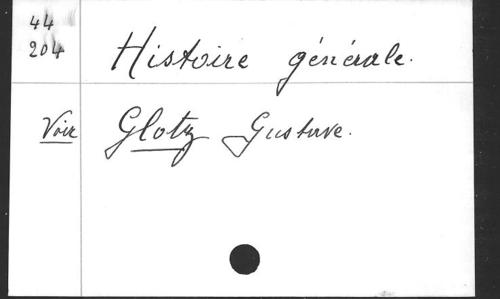 44
204
Histoire générale.
Voir Glotz Gustave.